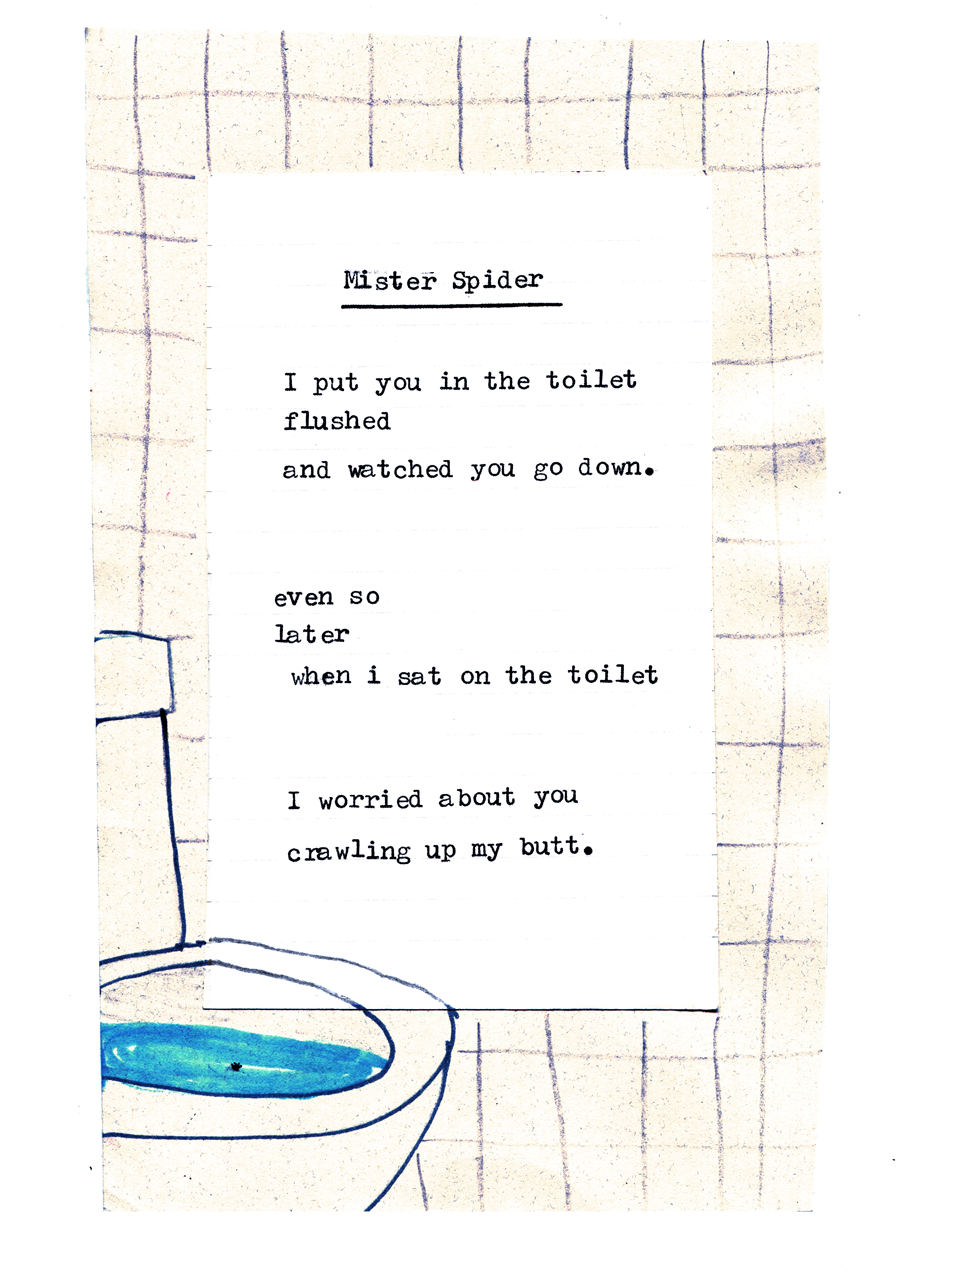 Mister Spider
I put you in the toilet
flushed
and watched you go down.
even so
later
when i sat on the toilet
I worried about you
crawling up my butt.